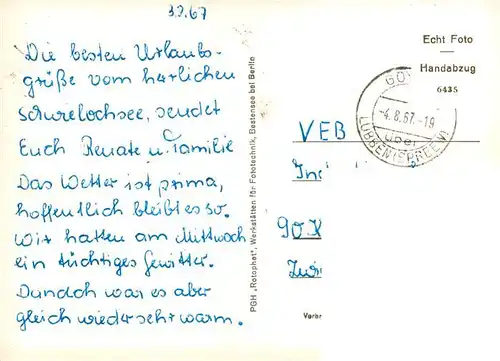 3.8.67
Die besten Urlaubs-
grüße vom harlichen
Schwielochsee, sendet
Euch Renate u. Familie
Das Wetter ist prima,
hoffentlich bleibt es so.
Wir hatten am Mittwoch
ein tüchtiges Gewitter.
Danach war es aber
gleich wieder sehr warm.
PGH „Rotophot", Werkstätten für Fototechnik, Bestensee bei Berlin
Echt Foto
Handabzug
6435
-4.8.67.-19
über
LÜBBEN (SPREEW)
VEB
90X